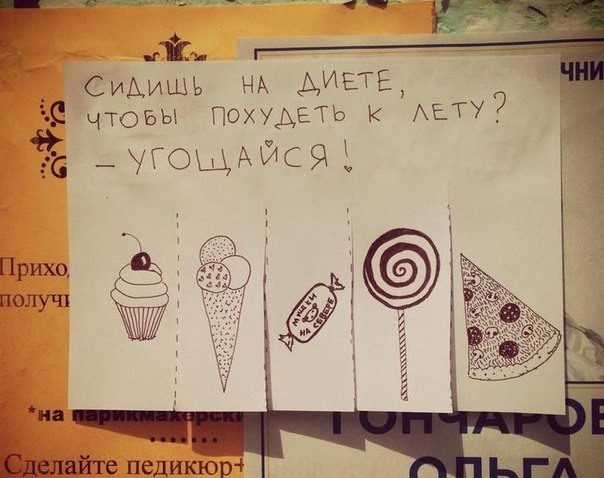 СИДИШЬ НА ДИЕТЕ,
ЧТОБЫ ПОХУДЕТЬ К ЛЕТУ?
– УГОЩАЙСЯ!
МИШКИ
НА СЕВЕРЕ
*на парикмахерски
Сделайте педикюр+
ГОНЧАРОВ
ОЛЬГА